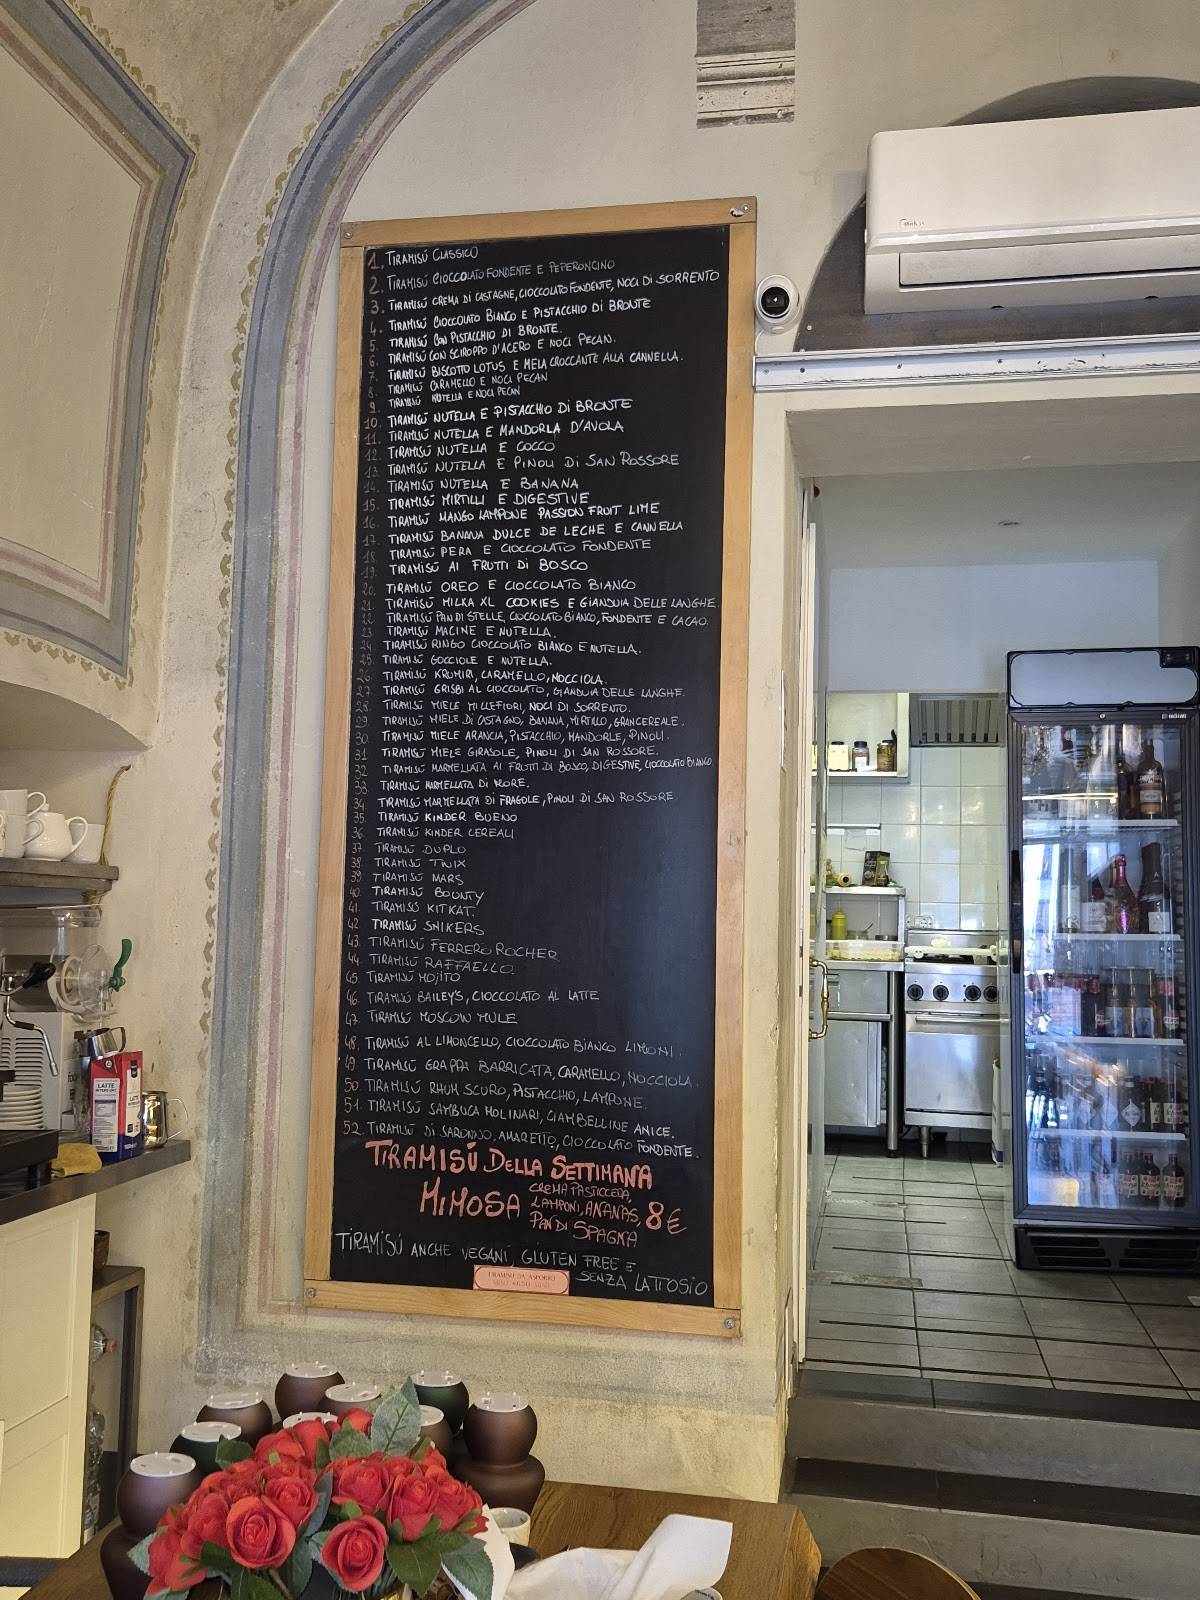 1. TIRAMISÚ CLASSICO
2. TIRAMISÚ CIOCCOLATO FONDENTE E PEPERONCINO
3. TIRAMISÚ CREMA DI CASTAGNE, CIOCCOLATO FONDENTE, NOCI DI SORRENTO
4. TIRAMISÚ CIOCCOLATO BIANCO E PISTACCHIO DI BRONTE
5. TIRAMISÚ CON PISTACCHIO DI BRONTE.
6. TIRAMISÚ CON SCIROPPO D'ACERO E NOCI PECAN.
7. TIRAMISÚ BISCOTTO LOTUS E MELA CROCCANTE ALLA CANNELLA.
8. TIRAMISÚ CARAMELLO E NOCI PECAN
9. TIRAMISÚ NUTELLA E NOCI PECAN
10. TIRAMISÚ NUTELLA E PISTACCHIO DI BRONTE
11. TIRAMISÚ NUTELLA E MANDORLA D'AVOLA
12. TIRAMISÚ NUTELLA E COCCO
13. TIRAMISÚ NUTELLA E PINOLI DI SAN ROSSORE
14. TIRAMISÚ NUTELLA E BANANA
15. TIRAMISÚ MIRTILLI E DIGESTIVE
16. TIRAMISÚ MANGO LAMPONE PASSION FRUIT LIME
17. TIRAMISÚ BANANA DULCE DE LECHE E CANNELLA
18. TIRAMISÚ PERA E CIOCCOLATO FONDENTE
19. TIRAMISÚ AI FRUTTI DI BOSCO
20. TIRAMISÚ OREO E CIOCCOLATO BIANCO
21. TIRAMISÚ MILKA XL COOKIES E GIANDUIA DELLE LANGHE
22. TIRAMISÚ PAN DI STELLE, CIOCCOLATO BIANCO, FONDENTE E CACAO.
23. TIRAMISÚ MACINE E NUTELLA.
24. TIRAMISÚ RINGO CIOCCOLATO BIANCO E NUTELLA.
25. TIRAMISÚ GOCCIOLE E NUTELLA.
26. TIRAMISÚ KRUMIRI, CARAMELLO, NOCCIOLA.
27. TIRAMISÚ GRISBI AL CIOCCOLATO, GIANDUIA DELLE LANGHE.
28. TIRAMISÚ MIELE MILLEFIORI, NOCI DI SORRENTO.
29. TIRAMISÚ MIELE DI CASTAGNO, BANANA, MIRTILLO, GRANCEREALE.
30. TIRAMISÚ MIELE ARANCIA, PISTACCHIO, MANDORLE, PINOLI.
31 TIRAMISÚ MIELE GIRASOLE, PINOLI DI SAN ROSSORE.
32 TIRAMISÚ MARMELLATA AI FRUTTI DI BOSCO, DIGESTIVE, CIOCCOLATO BIANCO
33. TIRAMISÚ MARMELLATA DI MORE.
34. TIRAMISÚ MARMELLATA DI FRAGOLE, PINOLI DI SAN ROSSORE
35. TIRAMISÚ KINDER BUENO
36. TIRAMISÚ KINDER CEREALI
37. TIRAMISÚ DUPLO
38 TIRAMISÚ TWIX
39 TIRAMISÚ MARS
40. TIRAMISÚ BOUNTY
41. TIRAMISÚ KITKAT.
42. TIRAMISÚ SNIKERS
43. TIRAMISÚ FERRERO ROCHER
44. TIRAMISÚ RAFFAELLO.
45. TIRAMISÚ MOJITO
46. TIRAMISÚ BAILEY'S, CIOCCOLATO AL LATTE
47. TIRAMISÚ MOSCOW MULE
48. TIRAMISÚ AL LIMONCELLO, CIOCCOLATO BIANCO LIMONI.
49. TIRAMISÚ GRAPPA BARRICATA, CARAMELLO, NOCCIOLA.
50. TIRAMISÚ RHUM SCURO, PISTACCHIO, LAMPONE.
51. TIRAMISÚ SAMBUCA MOLINARI, CIAMBELLINE ANICE.
52. TIRAMISÚ DI SARONNO, AMARETTO, CIOCCOLATO FONDENTE.
TIRAMISÚ DELLA SETTIMANA
MIMOSA CREMA PASTICCERA,
LAMPONI, ANANAS, 8€
PAN DI SPAGNA
TIRAMISÚ ANCHE VEGANI, GLUTEN FREE E
SENZA LATTOSIO
TIRAMISÙ DA ASPORTO
Midea
LATTE
LATTE